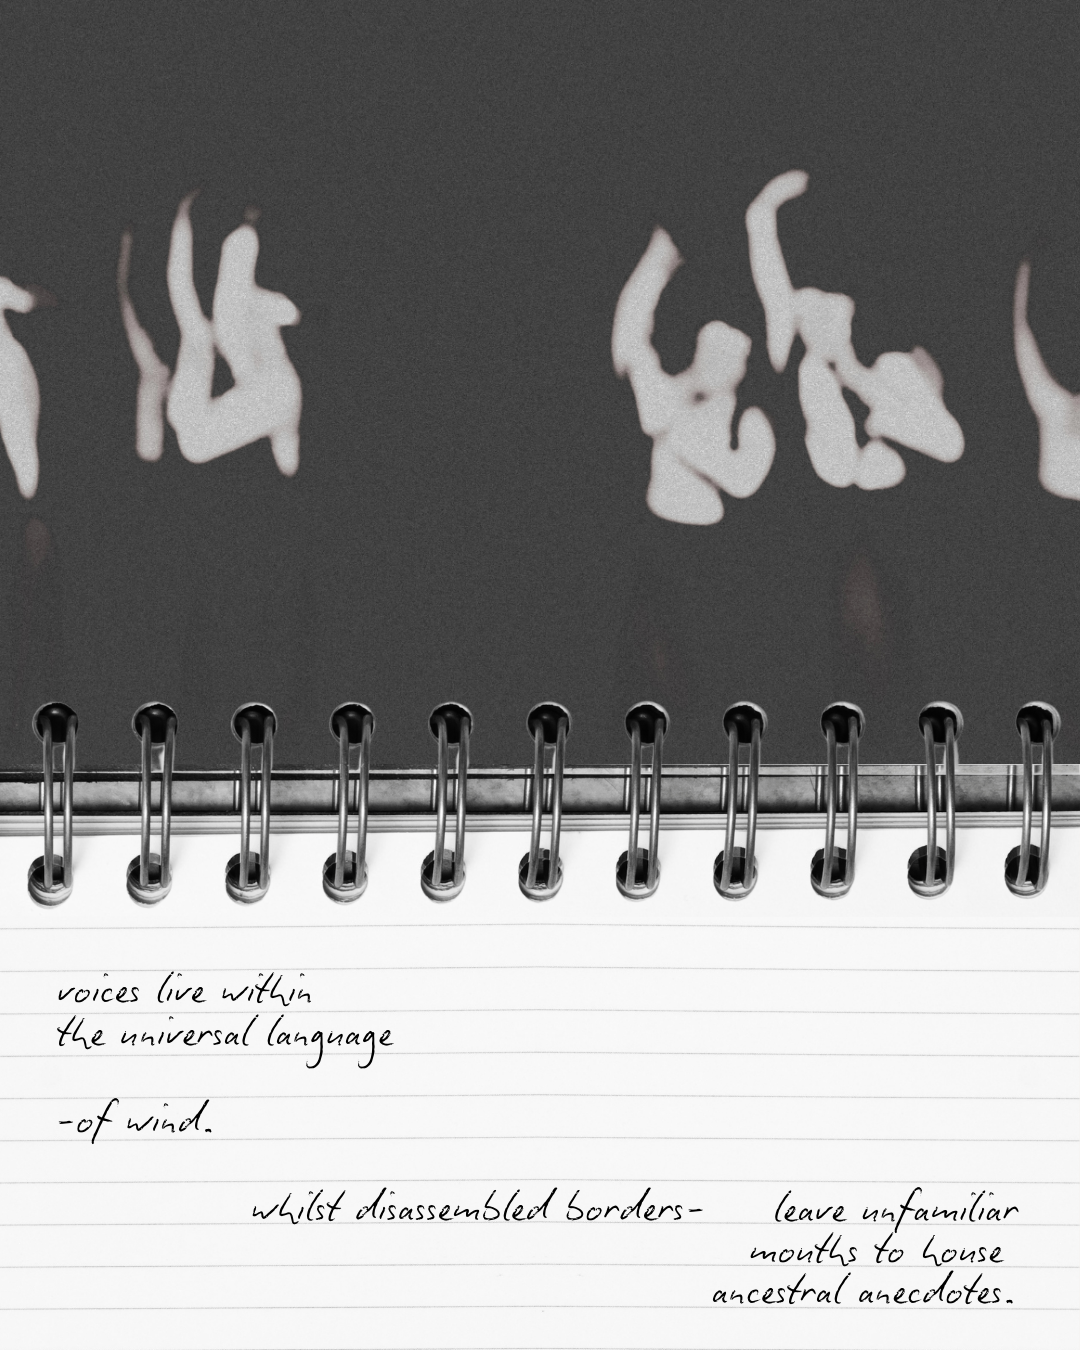 voices live within
the universal language
-of wind.
whilst disassembled borders- leave unfamiliar
mouths to house
ancestral anecdotes.